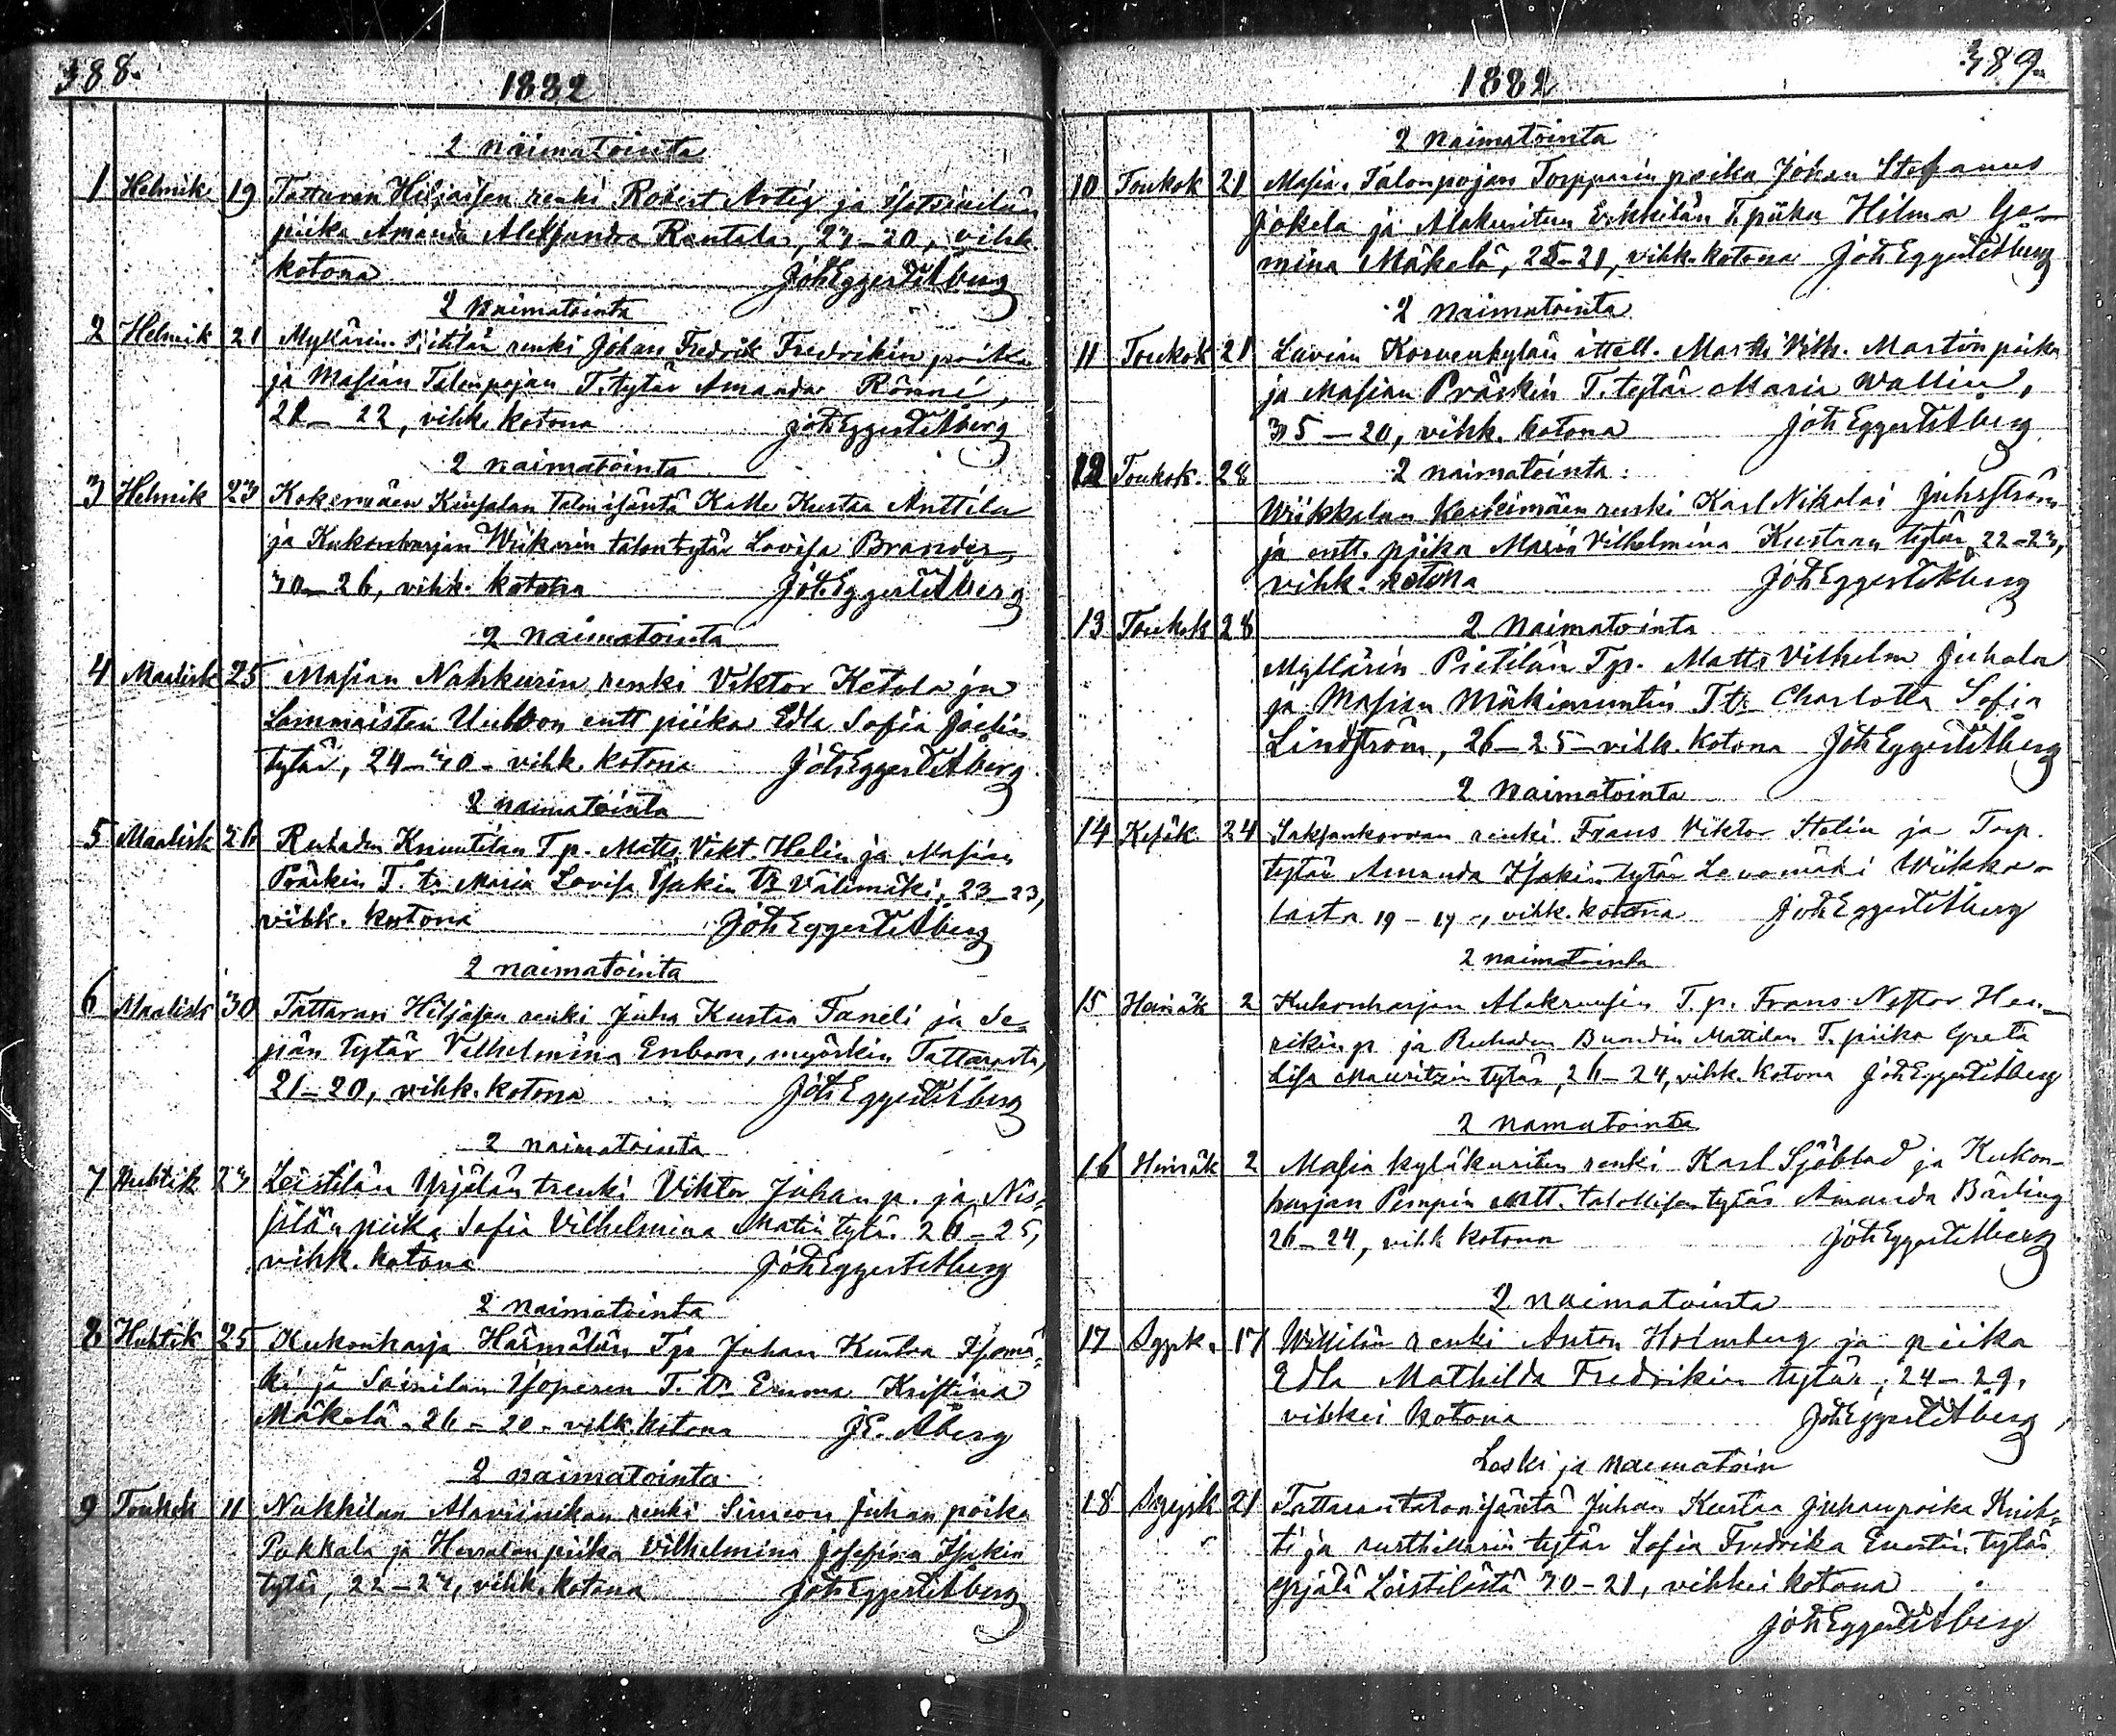 388.
1882
2 naimatointa
1 Helmik 19 Tattaran Hiljaisen renki Robert Artig ja
piika Amanda Aleksandra Rantala, 23-20, vihk.
kotona Joh Eggert Åberg
2 Naimatointa
2 Helmik 21 Myllärin renki Johan Fredrik Fredrikin poika
ja Masian Talonpojan T. tytär Amanda Rönni,
22, vihk. kotona Joh Eggert Åberg
2 naimatointa
3 Helmik 23 Kokemäen talonisäntä Kalle Kustaa Anttila
ja Kukonharjan talontytär Lovisa Brander,
30-26, vihk. kotona Joh Eggert Åberg
2 Naimatointa
4 Maalisk 25 Masian Nahkurin renki Viktor Ketola ja
Lammaisten entt piika Edla Sofia
tytär, 24-30- vihk. kotona Joh Eggert Åberg
2 naimatointa
5 Maalisk 26 Ruhaden Knuutilan Tp. Matts Vikt. Helin ja Masian
Präskin T. tr Maria Lovisa Isakin tr Välimäki, 23-23,
vihk. kotona Joh Eggert Åberg
2 naimatointa
6 Maalisk 30 Tattaran renki Juha Kustaa Taneli ja Se-
pän tytär Vilhelmina Enbom, myöskin Tattarasta,
21-20, vihk. kotona Joh Eggert Åberg
2 naimatointa
7 Huhtik 23 Leistilän Yrjälän trenki Viktor Juhan p. ja
piika Sofia Vilhelmina Matin tytä. 26-25,
vihk. kotona Joh Eggert Åberg
2 naimatointa
8 Huhtik 25 Kukonharja Härmälän Tp. Juhan Kustaa Isomä-
ki ja Soinilan T. tr Emma Kristina
Mäkelä - 26-20- vihk. kotona J.E. Åberg
2 naimatointa
9 Toukok 11 Nakkilan Alaviinikan renki Simeon Juhan poika
Pukkala ja piika Vilhelmina Josefina Isakin
tytär, 22-23, vihk. kotona Joh Eggert Åberg
389.
1882
2 Naimatointa
10 Toukok 21 Masia, Talonpojan Torpparin poika Johan Stefanus
Jokela ja T. piika Hilma Ge-
mina Mäkelä, 25-21, vihk. kotona Joh Eggert Åberg
2 Naimatointa
11 Toukok 21 Lavian Korvenkylän ittell. Martti Vilh. Martin poika
ja Masian Präskin T. tytär Maria Wallin,
35-20, vihk. kotona Joh Eggert Åberg
12 Toukok. 28 2 naimatointa
Wiikkalan renki Karl Nikolai Juhsström
ja entt. piika Maria Vilhelmina Kustaan tytär, 22-23,
vihk. kotona Joh Eggert Åberg
13 Toukok 28 2 Naimatointa
Myllärin Pietilän Tp. Matts Vilhelm Juhala
ja Masian T tr Charlotta Sofia
Lindström, 26-25- vihk. kotona Joh Eggert Åberg
2 Naimatointa
14 Kesäk 24 renki Frans Viktor Stolin ja Torp.
tytär Amanda Isakin tytär Wiikka-
lasta 19-19-, vihk. kotona Joh Eggert Åberg
2 naimatointa
15 Heinäk 2 Kukonharjan T. p. Frans Nestor Hen-
rikin p ja Ruhaden Mattilan T. piika Greta
Lisa Mauritzin tytär, 26-24, vihk. kotona Joh Eggert Åberg
2 namatointa
16 Heinäk 2 Masia kyläkunitun renki Karl Sjöblad ja Kukon-
harjan Pempin entt. tytär Amanda Bärling
26-24, vihk kotona Joh Eggert Åberg
2 naimatointa
17 Syysk. 17 Willilän renki Anton Holmberg ja piika
Edla Mathilda Fredrikin tytär, 24-29,
vihkei kotona Joh Eggert Åberg
Leski ja naimatoin
18 Syysk 21 Tattaran talonisäntä Juhan Kustaa Juhanpoika Knih-
ti ja tytär Sofia Fredrika tytär
Yrjälä Leistilästä 30-21, vihkei kotona
Joh Eggert Åberg